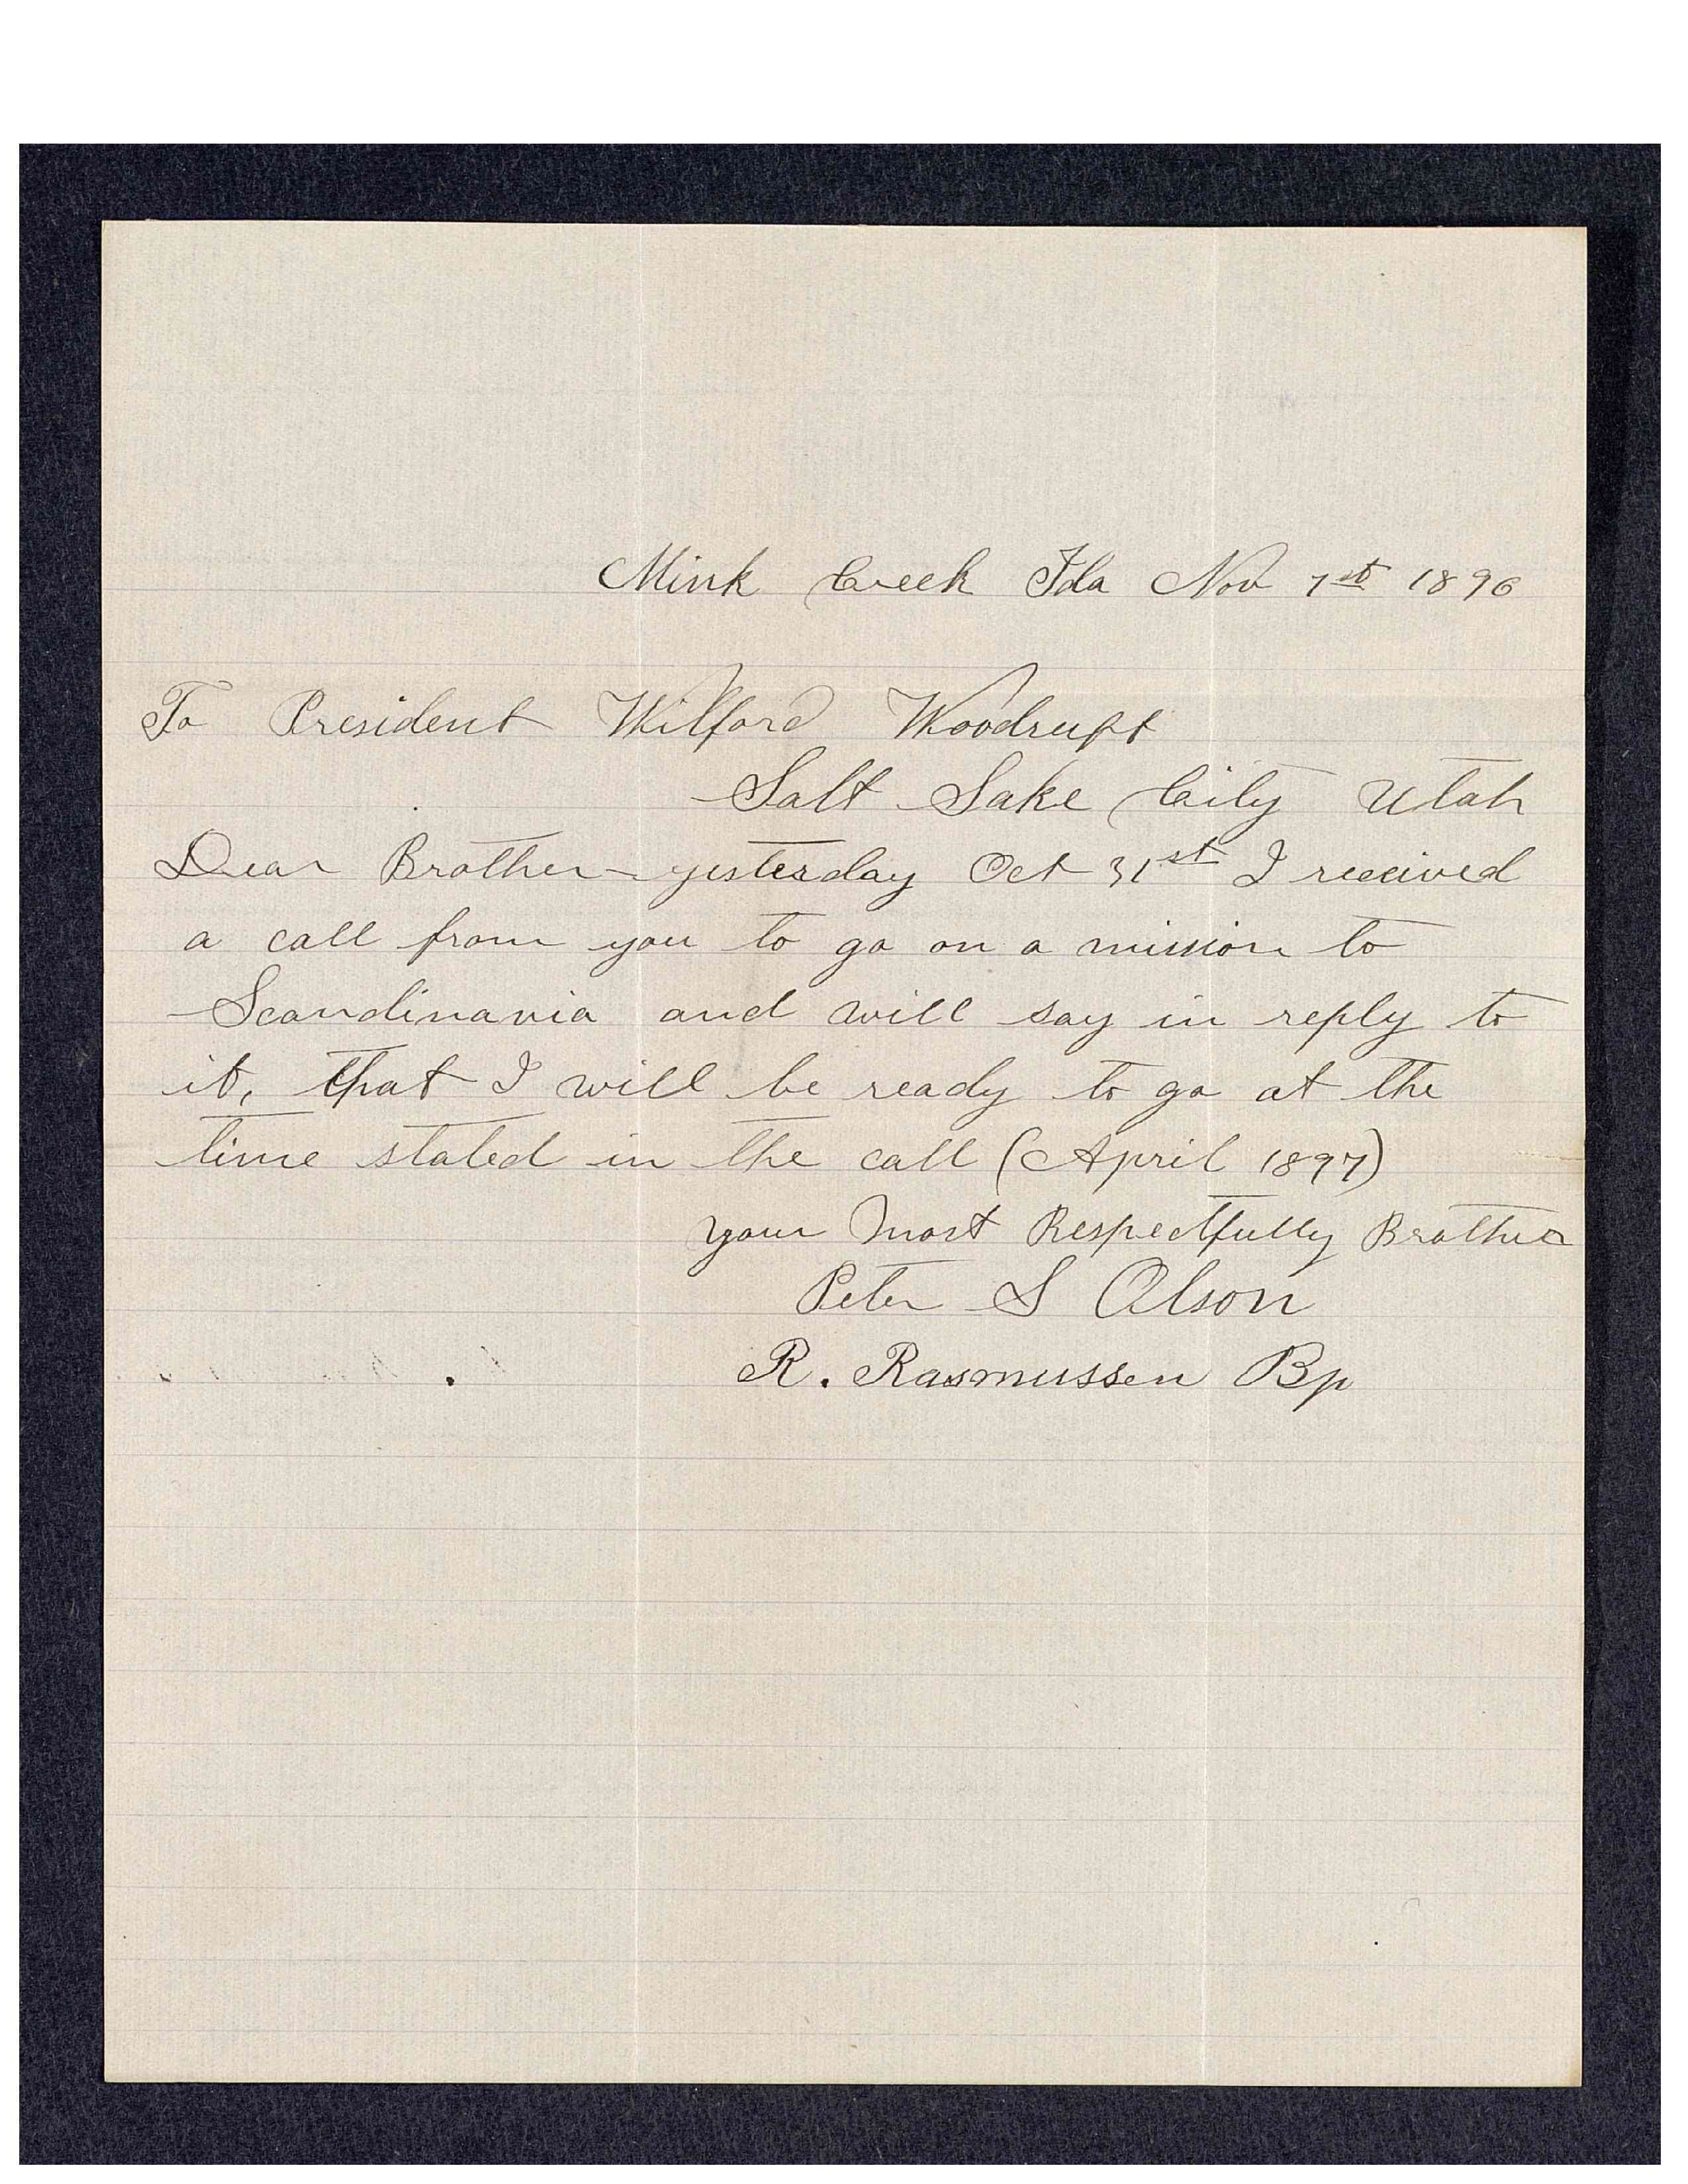 Mink Creek Ida Nov 1st 1896
To President Wilford Woodruff
Salt Lake City Utah
Dear Brother - yesterday Oct 31st I received
a call from you to go on a mission to
Scandinavia and will say in reply to
it, that I will be ready to go at the
time stated in the call (April 1897)
your most Respectfully Brother
Peter S Olson
R. Rasmussen Bp